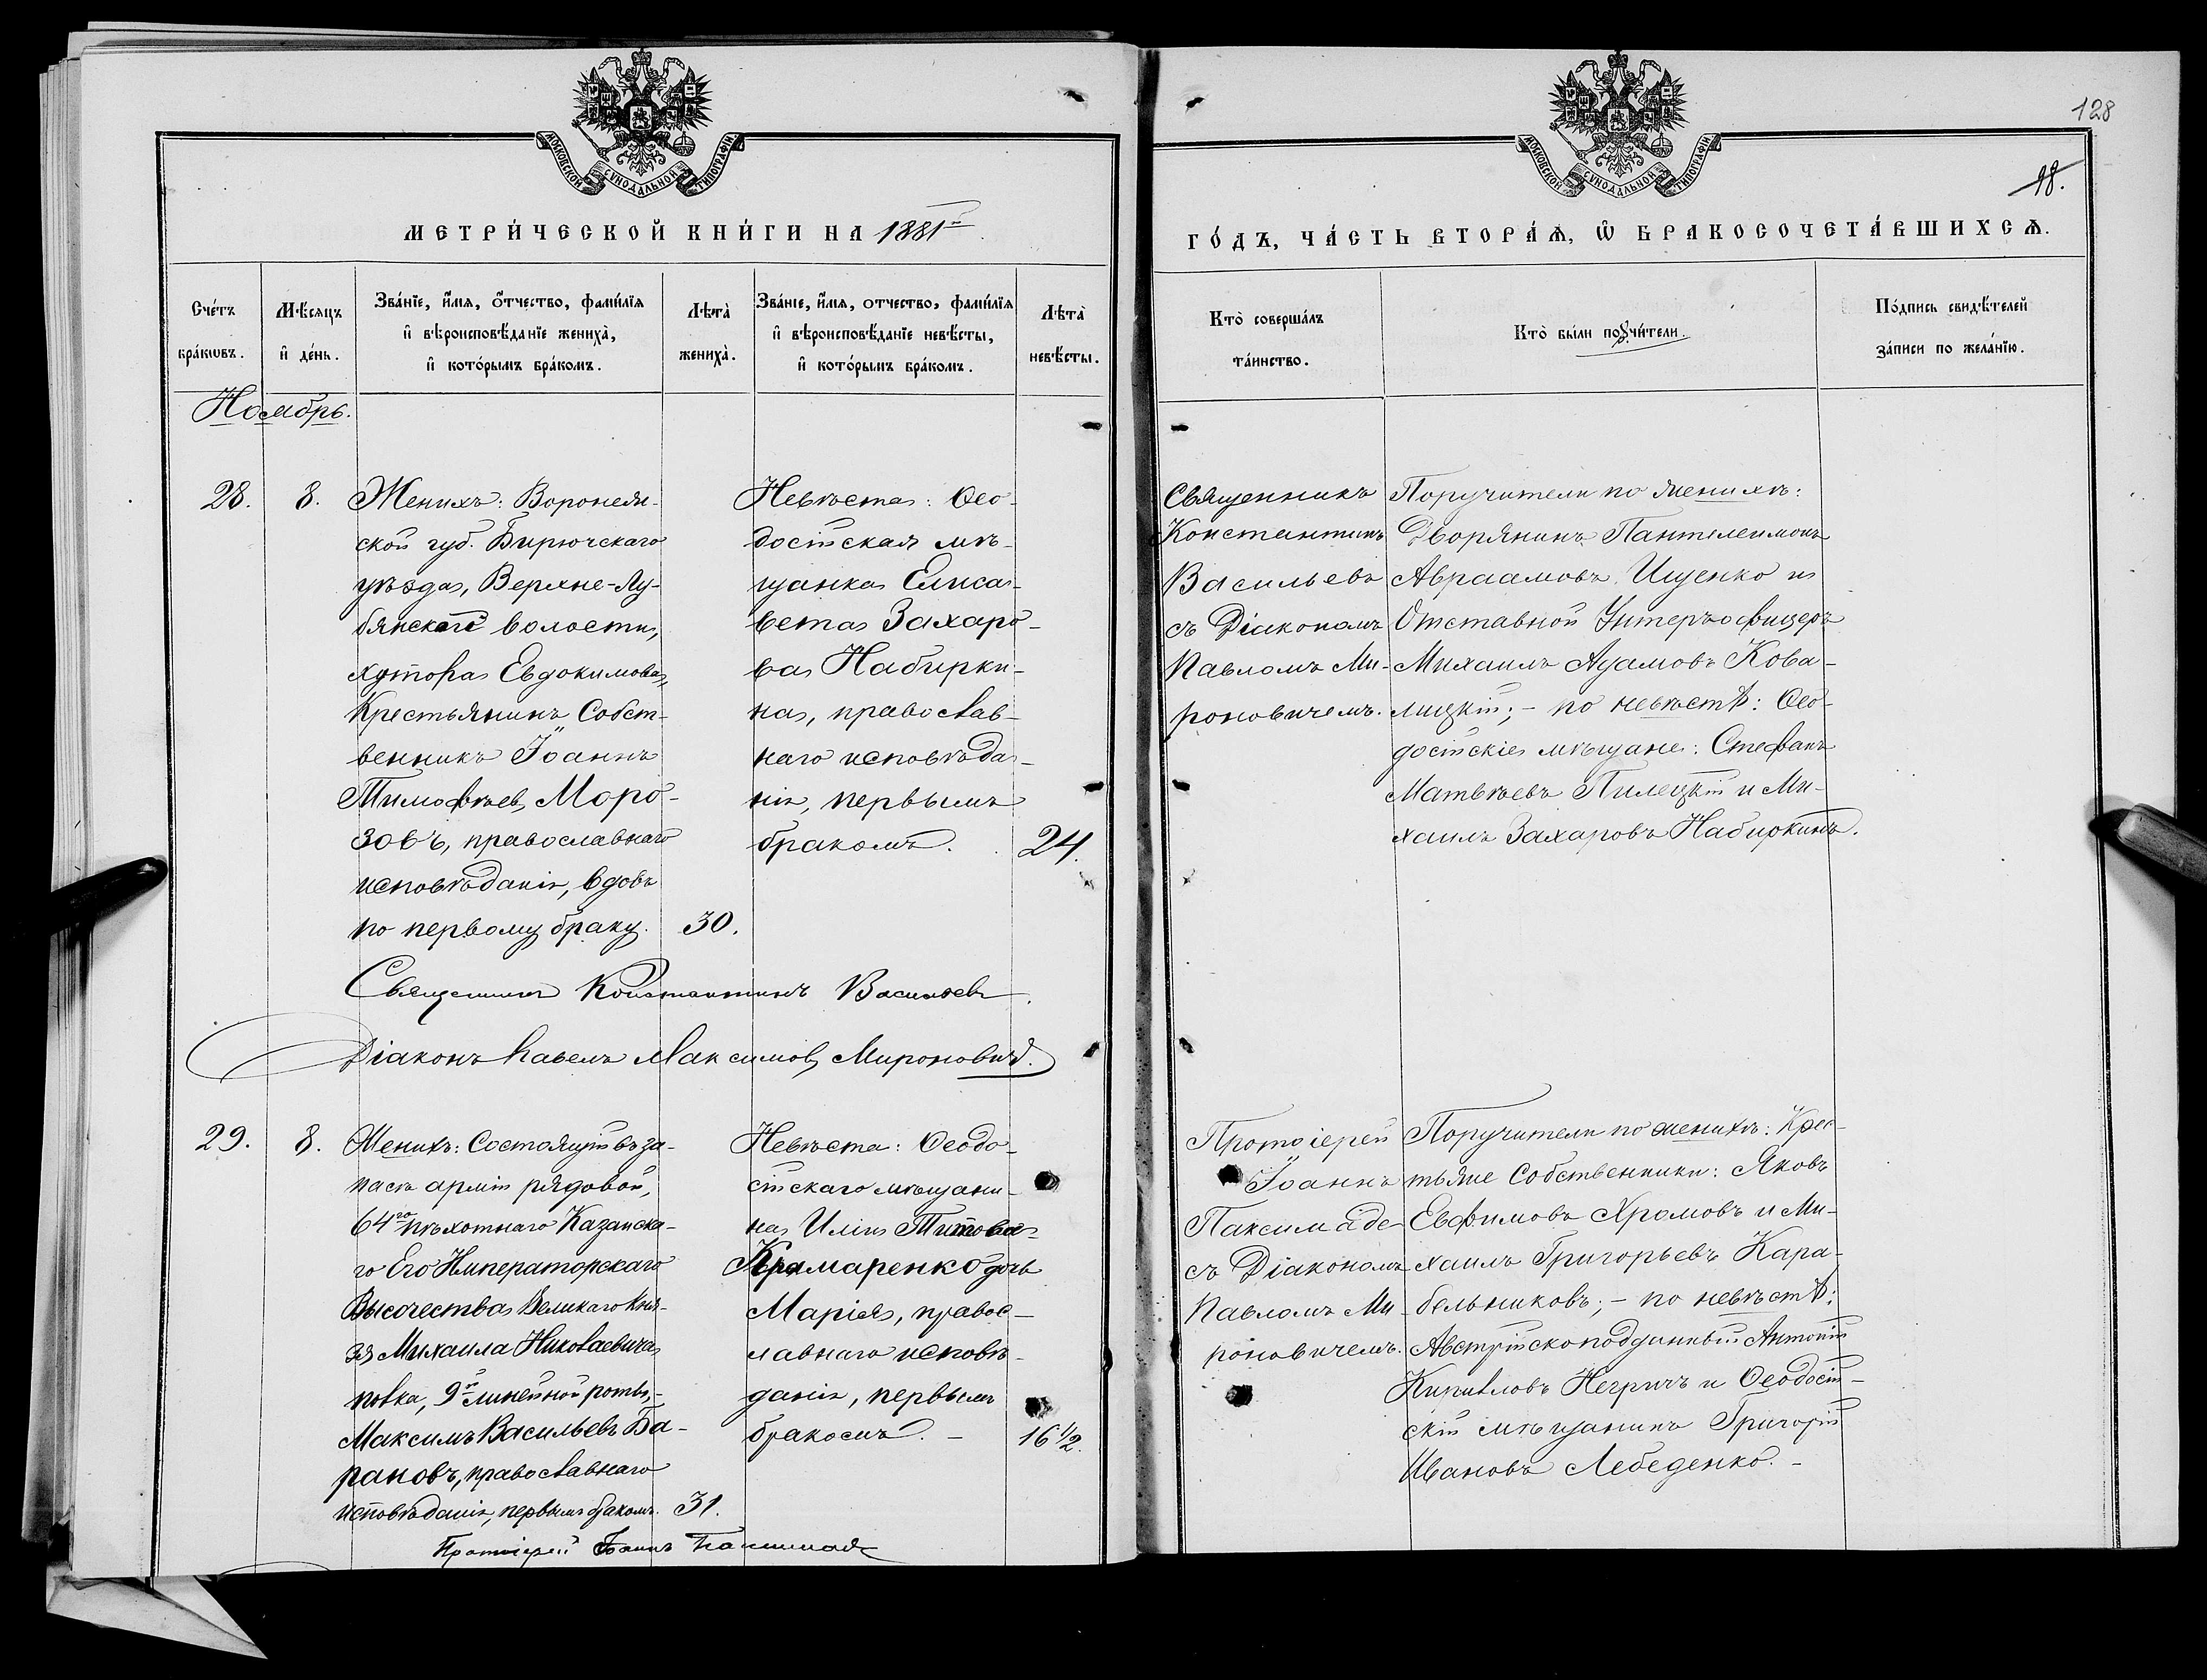 128
18.
МОСКОВСКОЙ СѴНОДАЛЬНОЙ ТИПОГРАФІИ
МОСКОВСКОЙ СѴНОДАЛЬНОЙ ТИПОГРАФІИ
МЕТРИ́ЧЕСКОЙ КНИ́ГИ НА 1881й
ГО́ДЪ, ЧА́СТЬ ВТОРА́Ѧ, Ѽ БРАКОСОЧЕТА́ВШИХСѦ.
Сче́тъ
бра́кѡвъ.
Мѣ́сяцъ
и҆ де́нь.
Зва́нїе, и҆́мя, ѻ҆́тчество, фами́лїя
и҆ вѣроисповѣ́данїе жениха̀,
и҆ кото́рымъ бра́комъ.
Лѣта̀
жениха̀.
Зва́нїе, и҆́мя, отчество, фами́лїя
и҆ вѣроисповѣ́данїе невѣ́сты,
и҆ кото́рымъ бра́комъ.
Лѣта̀
невѣ́сты.
Кто̀ соверша́лъ
та́инство.
Кто̀ бы́ли поꙋчи́тели.
По́дпись свидѣ́телей
за́писи по жела́нїю.
Ноябрь.
28.
8.
Женихъ: Воронеж-
ской губ. Бирючскаго
уѣзда, Верхне-Лу-
бянской волости,
хутора Евдокимова,
Крестьянинъ Собст-
венникъ Іоаннъ
Тимофѣев, Моро-
зовъ, православнаго
исповѣданія, вдовъ
по первому браку.
30.
Невѣста: Ѳео-
досійская мѣ-
щанка Елиса-
вета Захаро-
ва Набирки-
на, православ-
наго исповѣда-
нія, первымъ
бракомъ.
24.
Священникъ
Константинъ
Васильевъ
съ Діакономъ
Павломъ Ми-
роновичемъ.
Поручители по женихѣ:
Дворянинъ Пантелеимонъ
Авраамовъ Ищенко и
Отставной Унтеръ-офицеръ
Михаилъ Адамовъ Кова-
лицкій; - по невѣстѣ: Ѳео-
досійскіе мѣщане: Стефанъ
Матвѣевъ Пилецкій и Ми-
хаилъ Захаровъ Набиркинъ.
Священникъ Константинъ Васильевъ.
Діаконъ Павелъ Максимов, Мироновичъ.
29.
8.
Женихъ: Состоящій въ за-
пасѣ арміи рядовой,
64го пѣхотнаго Казанска-
го Его Императорскаго
Высочества Великаго Кня-
зя Михаила Николаевича
полка, 9й линейной роты,-
Максимъ Васильевъ Ба-
рановъ, православнаго
исповѣданія, первымъ бракомъ.
31.
Невѣста: Ѳеодо-
сійскаго мѣщани-
на Иліи Титова
Крамаренко дочь
Марія, правос-
лавнаго исповѣ-
данія, первымъ
бракомъ. -
16 ½.
Протоіерей
Іоаннъ
Паксимаде
съ Діакономъ
Павломъ Ми-
роновичемъ.
Поручители по женихѣ: Крес-
тьяне Собственники: Яковъ
Евфимовъ Хромовъ и Ми-
хаилъ Григорьевъ Кара-
бельниковъ; - по невѣстѣ:
Австрійскоподданный Антоній
Кирилловъ Негричъ и Ѳеодосій-
скій мѣщанинъ Григорій
Ивановъ Лебеденко. -
Протоіерей Іоаннъ Паксимаде